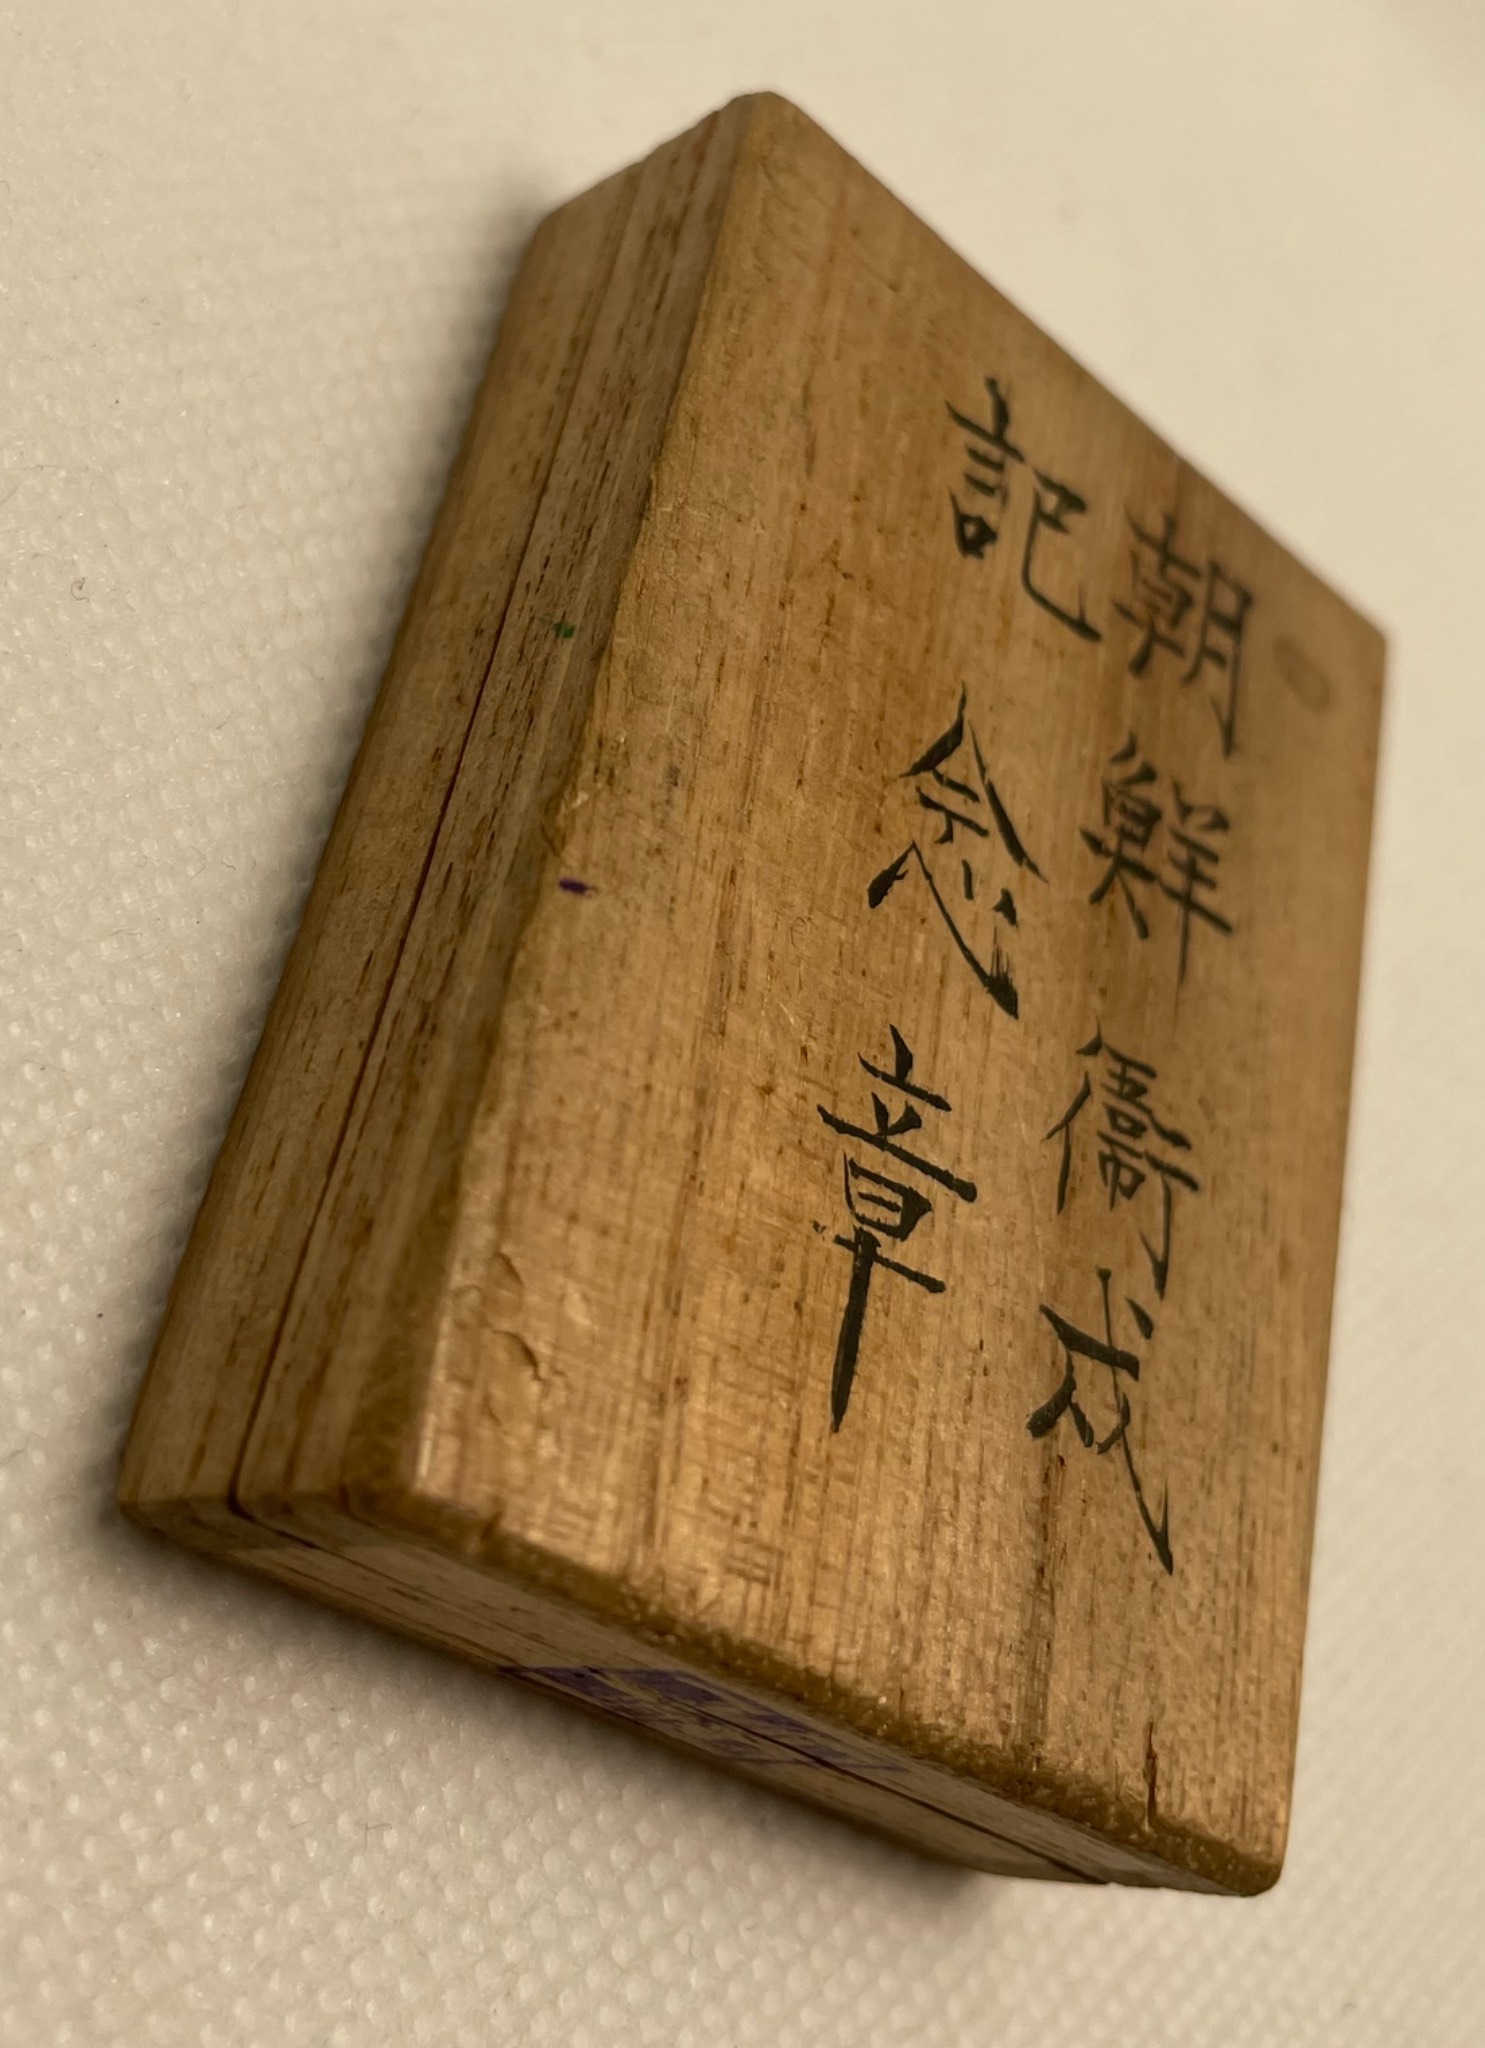 朝鮮衞戍
記念章